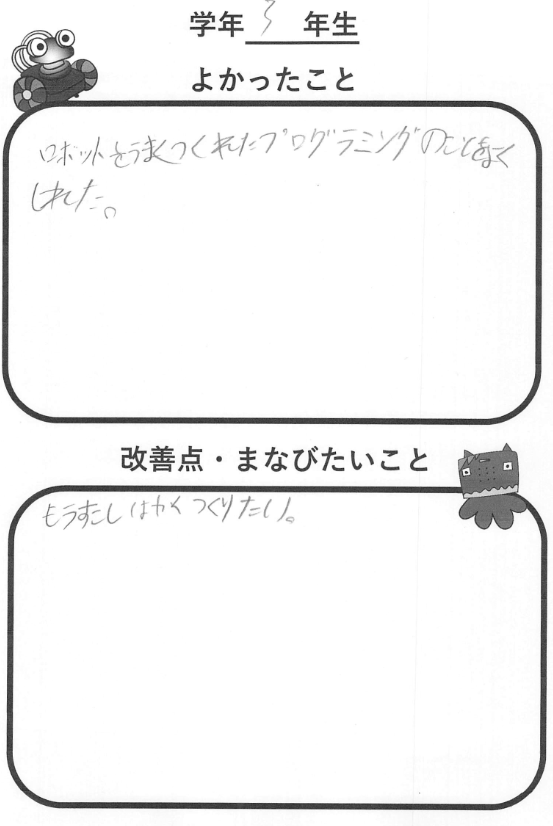 学年 3 年生
よかったこと
ロボットをうまくつくれたプログラミングのことをよく
しれた。
改善点・まなびたいこと
もうすこしはやくつくりたい。